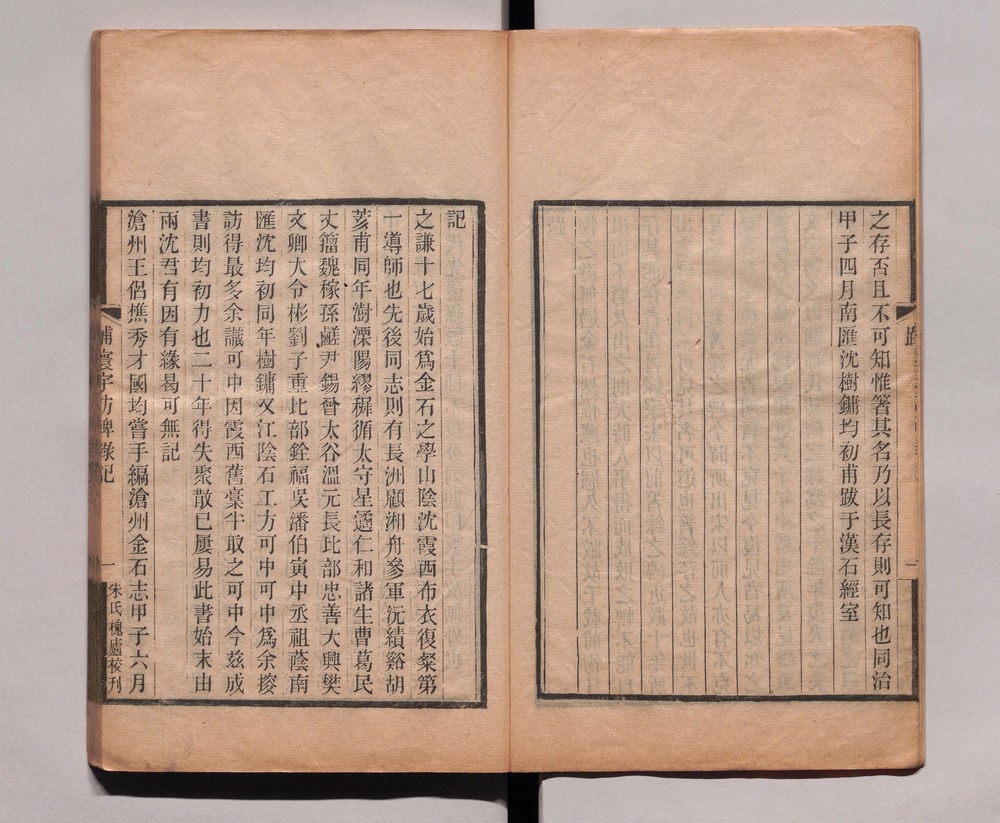 之存否且不可知惟箸其名乃以長存則可知也同治
甲子四月南匯沈樹鏞均初甫跋于漢石經室
記
之謙十七歲始爲金石之學山陰沈霞西布衣復粲第
一導師也先後同志則有長洲顧湘舟參軍沅績谿胡
荄甫同年澍溧陽繆稚循太守星遹仁和諸生曹葛民
籀魏稼孫鹺尹錫曾太谷溫元長比部忠善大興樊
文卿大令彬劉子重比部銓福吳潘伯寅中丞祖蔭南
匯沈均初同年樹鏞又江陰石工方可中可中爲余搜
訪得最多余識可中因霞西舊稾半取之可中今兹成
書則均初力也二十年得失聚散已屢易此書始末由
兩沈君有因有緣曷可無記
滄州王侶樵秀才國均嘗手編滄州金石志甲子六月
補寰宇訪碑錄記
一
朱氏槐廬校刊